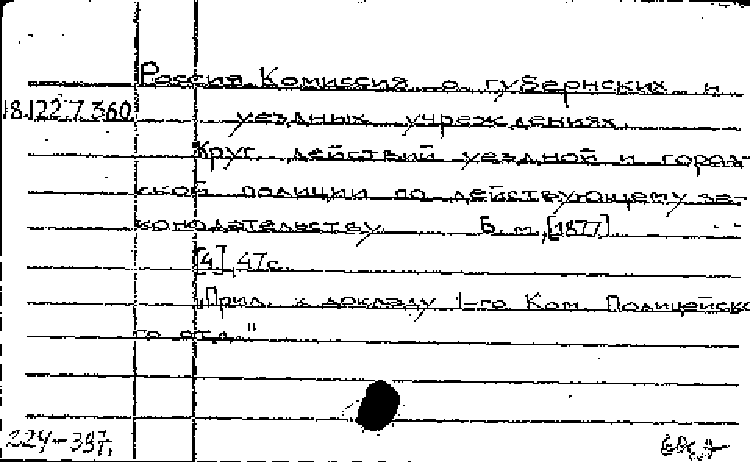 Россия. Комиссия о губернских и
18.122.7.360
уездных учреждениях.
Круг действий уездной и город-
ской полиции по действующему за-
конодательству. Б. м., [1877].
[4], 47с.
"Прил. к докладу 1-го Ком. Полицейско-
го отд."
224-397.